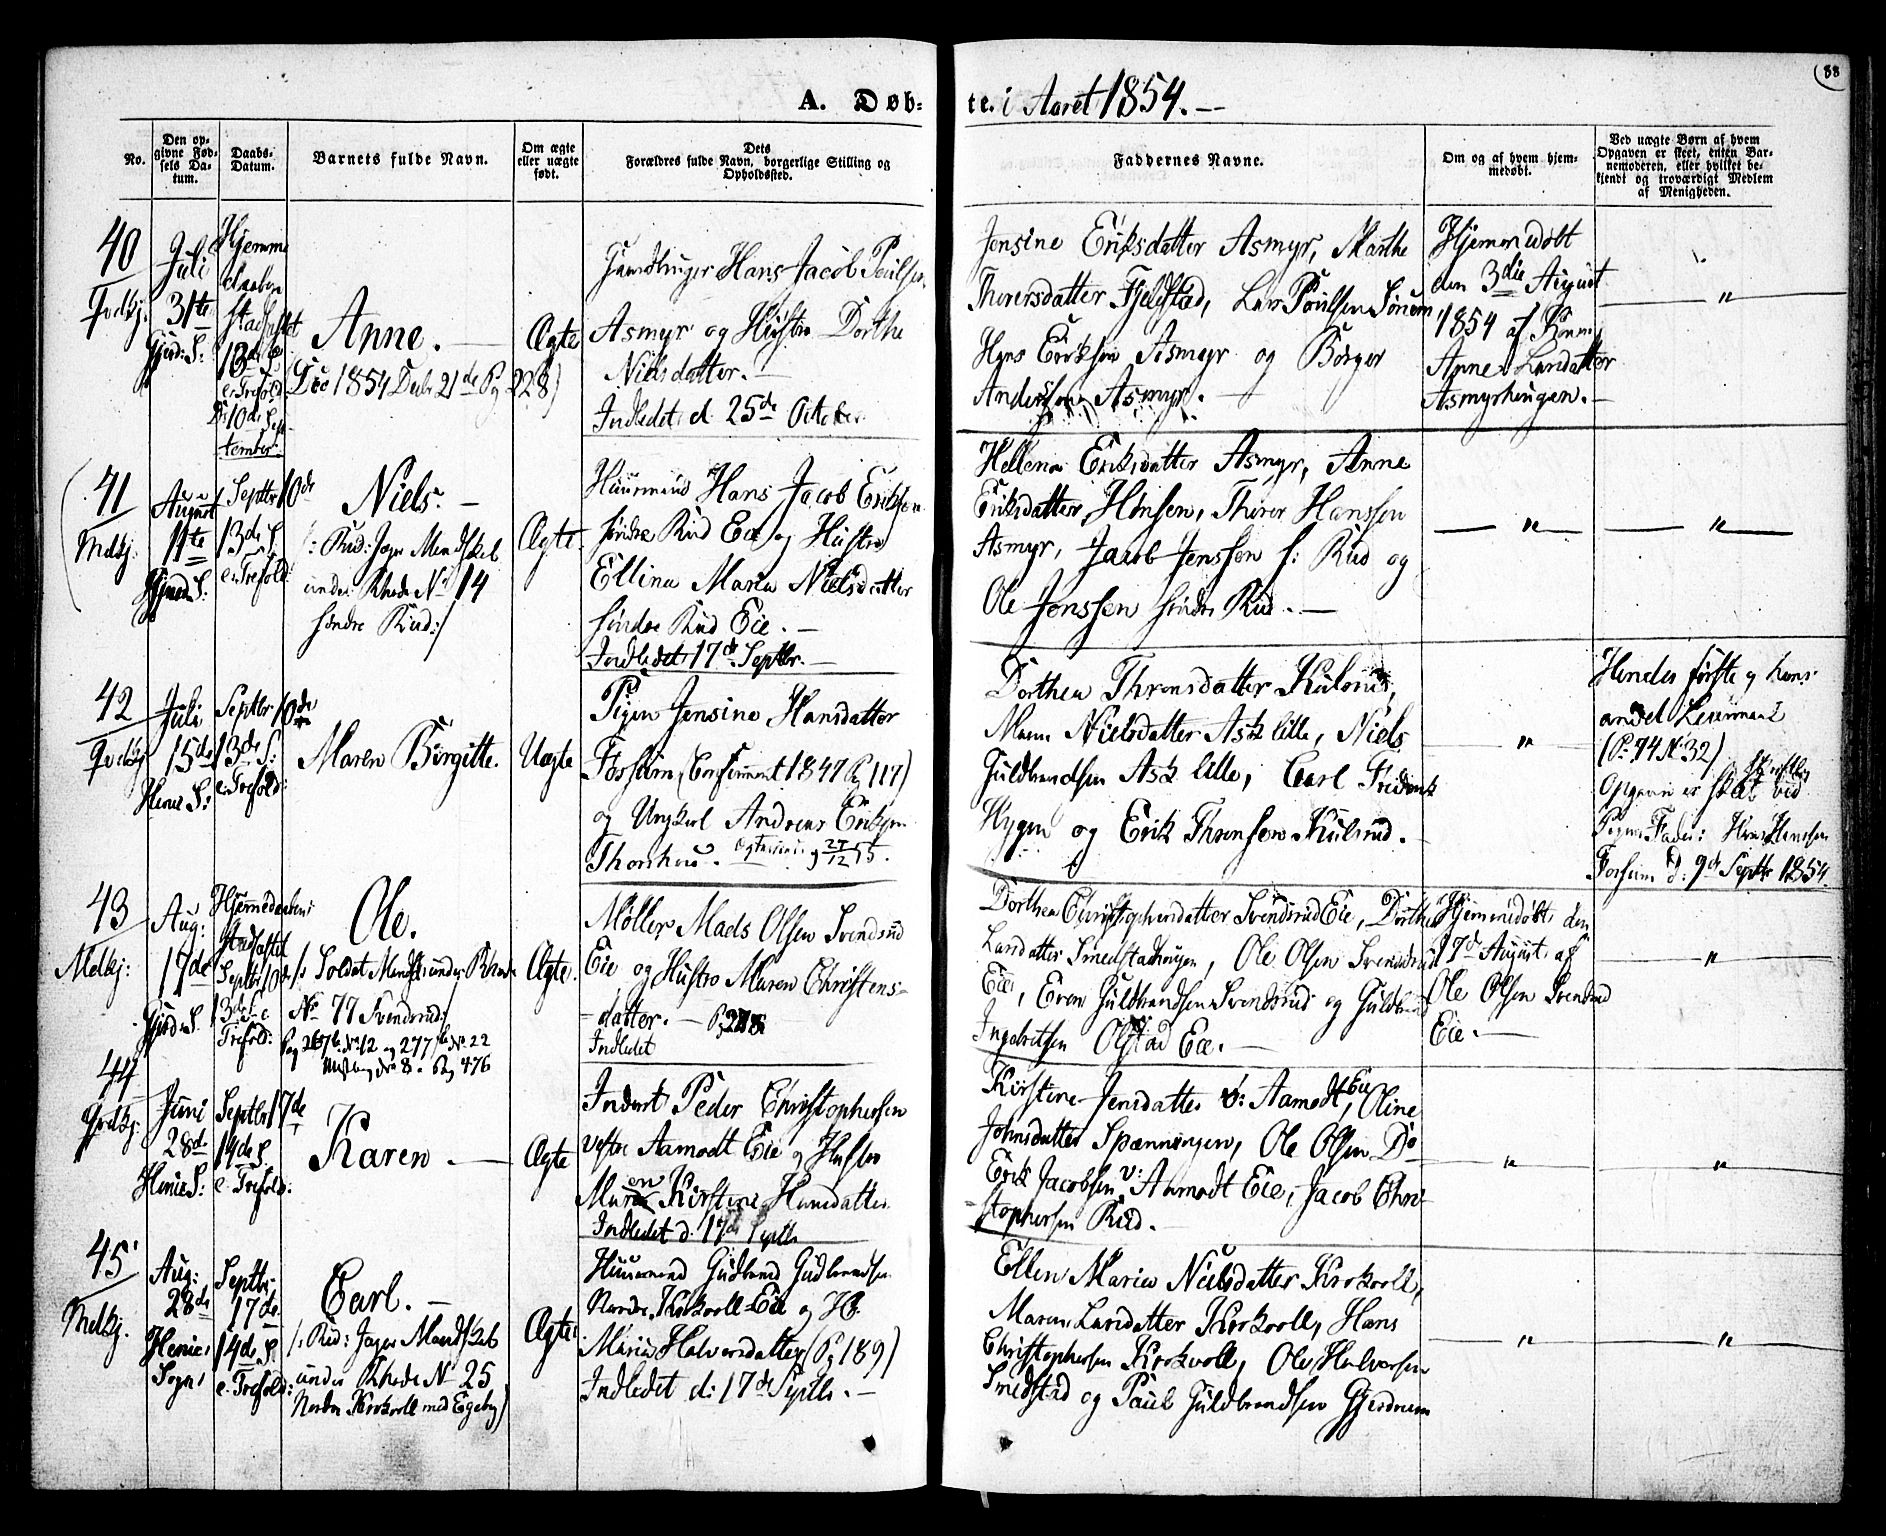 88
A. Døb:
te. i Aaret 1854. —
No.
Den opgivne Fødsels Datum.
Daabs-Datum.
Barnets fulde Navn.
Om ægte eller uægte født.
Dets Forældres fulde Navn, borgerlige Stilling og Opholdssted.
Faddernes Navne.
Om og af hvem hjemmedøbt.
Ved uægte Børn af hvem Opgaven er skeet, enten Barnemoderen, eller hvilket bekjendt og troværdigt Medlem af Menigheden.
40
Juli
31te
Hjemme
stadfæstet
13de S.
e. Trefold:
D: 10de Sep-
tember.
Anne. —
Døe 1854 Decbr 21de Pg 228)
Ægte
Hans Jacob Poulsen
Asmyr og Hustro Dorthe
Nielsdatter. —
Indledet d 25de October
Jensine Eriksdatter Asmyr, Marthe
Thorersdatter Fjeldstad, Lars Poulsen Sørum
Hans Eriksen Asmyr og Børger
Anderssen Asmyr. —
Hjemmedøbt
den 3die August
1854 af Kone
Anne Larsdatter
Asmyrhaugen. —
"
41
Melkj:
August
11te
Septbr 10de
13de S.
e. Trefold:
Niels. —
/: Rid: Jæger Mandskab
under Rhode No 14
søndre Rud :/
Ægte.
Huusmand Hans Jacob Eriksen
søndre Rud Eie og Hustro
Ellina Maria Nielsdatter
søndre Rud Eie. —
Indledet 17de Septbr. —
Hellena Eriksdatter Asmyr, Anne
Eriksdatter Hønsen, Thorer Hanssen
Asmyr, Jacob Jenssen s: Rud og
Ole Jonssen søndre Rud. —
— " —
— " —
42
Juli
15de
Henie S:
Septbr 10de
13de S:
e. Trefold:
Maren Birgitte.
Uægte
Pigen Jensine Hansdatter
Fossum (Confirmeret 1847 Pg 117)
og Ungkarl Andreas Eriksen
Thorshou.
Dorthea Thronsdatter Kulsrud,
Maren Nielsdatter Ask lille, Niels
Guldbrandsen Ask lille, Carl Fredrik
Hygen og Erik Thronsen Kulsrud.
"
Hendes første og hans
andet Leiermaal
(P. 74 N: 32) skriftlig
Opgaven er skeet ved
Pigens Fader: Hans Hanssen
Fossum d. 9de Septbr 1854.
43
Melkj:
Aug:
17de
Gjerd. S.
stadfæstet
Septbr 10de
13de S. e
Trefold:
Ole.
/: Soldat Mandsk. under Rhode
No 77 Svendsrud :/
Ægte.
Møller Mads Olsen Svendsrud
Eie og Hustro Maren Christens-
datter. —
Indledet
Dorthea Christophersdatter Svendsrud Eie, Dorthea
Larsdatter Smedstadhaugen, Ole Olsen Svendsrud
Eie, Even Guldbrandsen Svendsrud og Guldbrand
Ingebretsen Olstad Eie. —
Hjemmedøbt den
17de August af
Ole Olsen Svendsrud
Eie. —
— " —
44
Juni
28de
Henie S:
Septbr 17de
14de S.
e. Trefold:
Karen —
Ægte
Inderst Peder Christophersen
vestre Aamodt Eie og Hustro
Maren Kirstine Hansdatter
Indledet d. 17de Septbr
Kirstine Jensdatter v: Aamodt Eie, Oline
Johnsdatter Spænningen, Ole Olsen Do
Erik Jacobsen v: Aamodt Eie, Jacob Chri-
stophersen Rud. —
— " —
— " —
45
Melkj.
Aug:
28de
Henie
Sogn
Septbr
17de
14de S.
e. Trefold:
Carl. —
/: Rid: Jæger Mandskab
under Rhode No 25
Nordre Krokvoll med Egeby)
Ægte
Huusmand Gudbrand Gudbrandsen
Nordre Krokvoll Eie og H.
Maria Halvorsdatter (Pg 189)
Indledet d: 17de Septbr. —
Ellen Maria Nielsdatter Krokvoll,
Maren Larsdatter Krokvoll, Hans
Christophersen Krokvoll, Ole Halvorsen
Smedstad og Paul Guldbrandsen Gjerdrum
— " —
— " —